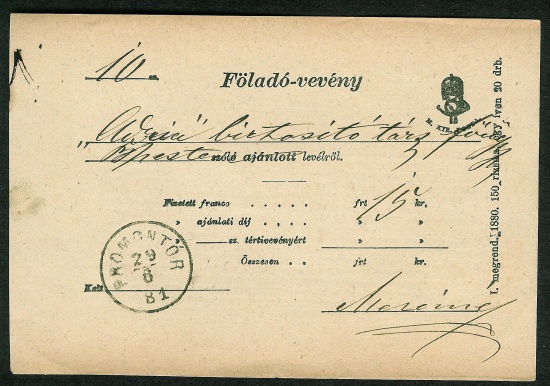 10
Föladó-vevény
M. KIR. POSTA
„Adria" biztositó társ.
Bpesten
szóló ajánlott levélről.
Fizetett franco . . . . . . frt 15 kr.
„ ajánlati díj . . . . . „ „
„ sz. tértivevényért „ „
Összesen . . . frt kr.
Kelt
PROMONTOR
29
6
81
I. megrend. 1880. 150 egy iven 20 drb.